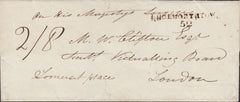 On His Majesty's
2/8
M. W. Clifton Esqr
Victualling Board
Somerset place
London